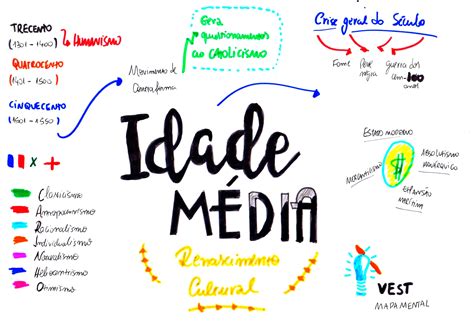 TRECENTO
(1301 - 1400)
HUMANISMO
QUATROCENTO
(1401 - 1500)
CINQUECENTO
(1501 - 1550)
Movimento de
Contrarreforma
Gera
questionamentos
ao CATOLICISMO
Crise geral do Século
Fome
Peste
negra
guerra dos
Cem - 100
anos
Idade
MÉDIA
Renascimento
Cultural
x
Classicismo
Antropocentrismo
Racionalismo
Individualismo
Naturalismo
Heliocentrismo
Otimismo
ESTADO MODERNO
ABSOLUTISMO
MONÁRQUICO
MERCANTILISMO
$
EXPANSÃO
MARÍTIMA
VEST
MAPAMENTAL